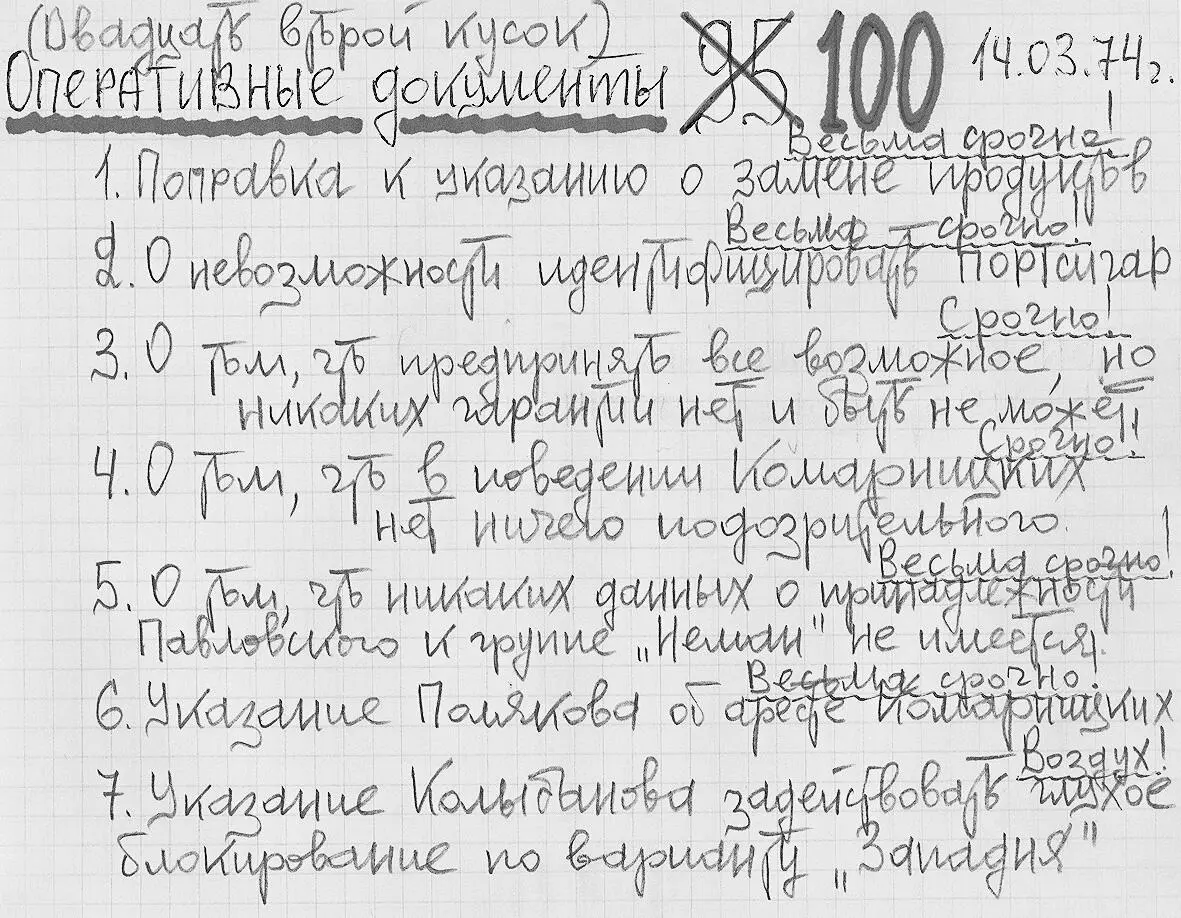 (Двадцать второй кусок)
Оперативные документы 95 100 14.03.74г.
Весьма срочно!
1. Поправка к указанию о замене продуктов
Весьма срочно!
2. О невозможности идентифицировать портсигар
Срочно!
3. О том, что предпринять все возможное, но
никаких гарантий нет и быть не может
Срочно!
4. О том, что в поведении Комарницких
нет ничего подозрительного.
Весьма срочно!
5. О том, что никаких данных о принадлежности
Павловского к группе „Неман" не имеется.
Весьма срочно!
6. Указание Полякова об аресте Комарницких
Воздух!
7. Указание Колыбанова задействовать глухое
блокирование по варианту „Западня"